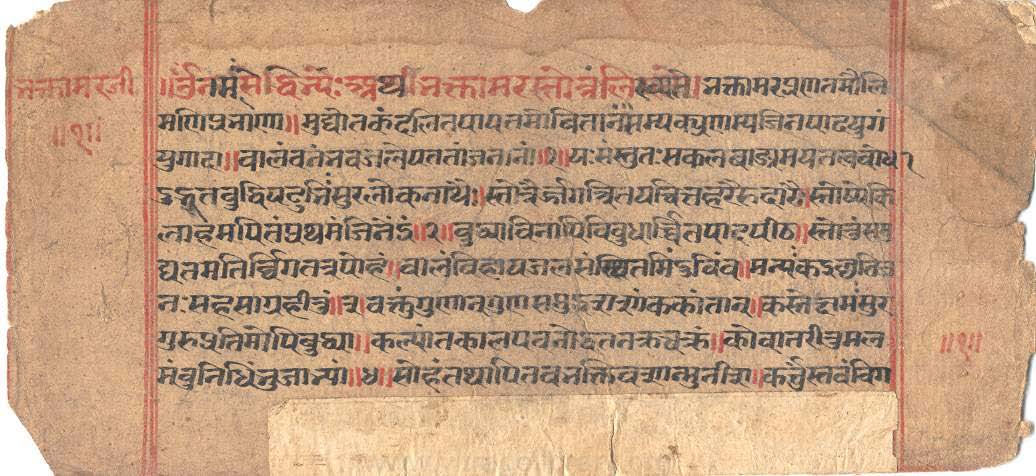 भक्तामरजी
॥१॥
॥ॐनमःसिद्धेभ्यः॥अथभक्तामरस्तोत्रंलिख्यते॥भक्तामरप्रणतमौलि
मणिप्रभाणा॥मुद्योतकंदलितपापतमोवितानं॥सम्यक्प्रणम्यजिनपादयुगं
युगादा॥वालंवनंभवजलेपततांजनानां॥१॥यःसंस्तुतःसकलवाङ्मयतत्ववोधा
दुद्भुतवुद्धिपटुभिःसुरलोकनाथैः॥स्तोत्रैर्जगत्रितयचित्तहरैरुदारैः॥स्तोष्येकि
लाहमपितंप्रथमंजिनेंद्रं॥२॥वुद्ध्याविनापिविवुधार्च्चितपादपीठ॥स्तोतुंसमु
द्यतमतिर्विगतत्रपोहं॥वालंविहायजलसंस्थितमिंदुविंव॥मन्यःकइच्छतिज
नःसहसाग्रहीतुं॥३॥वक्तुंगुणान्गुणसमुद्रशशांककांतान्॥कस्तेक्षमःसुर
गुरुप्रतिमोपिवुद्ध्या॥कल्पांतकालपवनोद्धतनक्रचक्रं॥कोवातरीतुमल
मंवुनिधिंभुजाभ्यां॥४॥सोहंतथापितवभक्तिवशान्मुनीश॥कर्त्तुंस्तवंविग
॥१॥